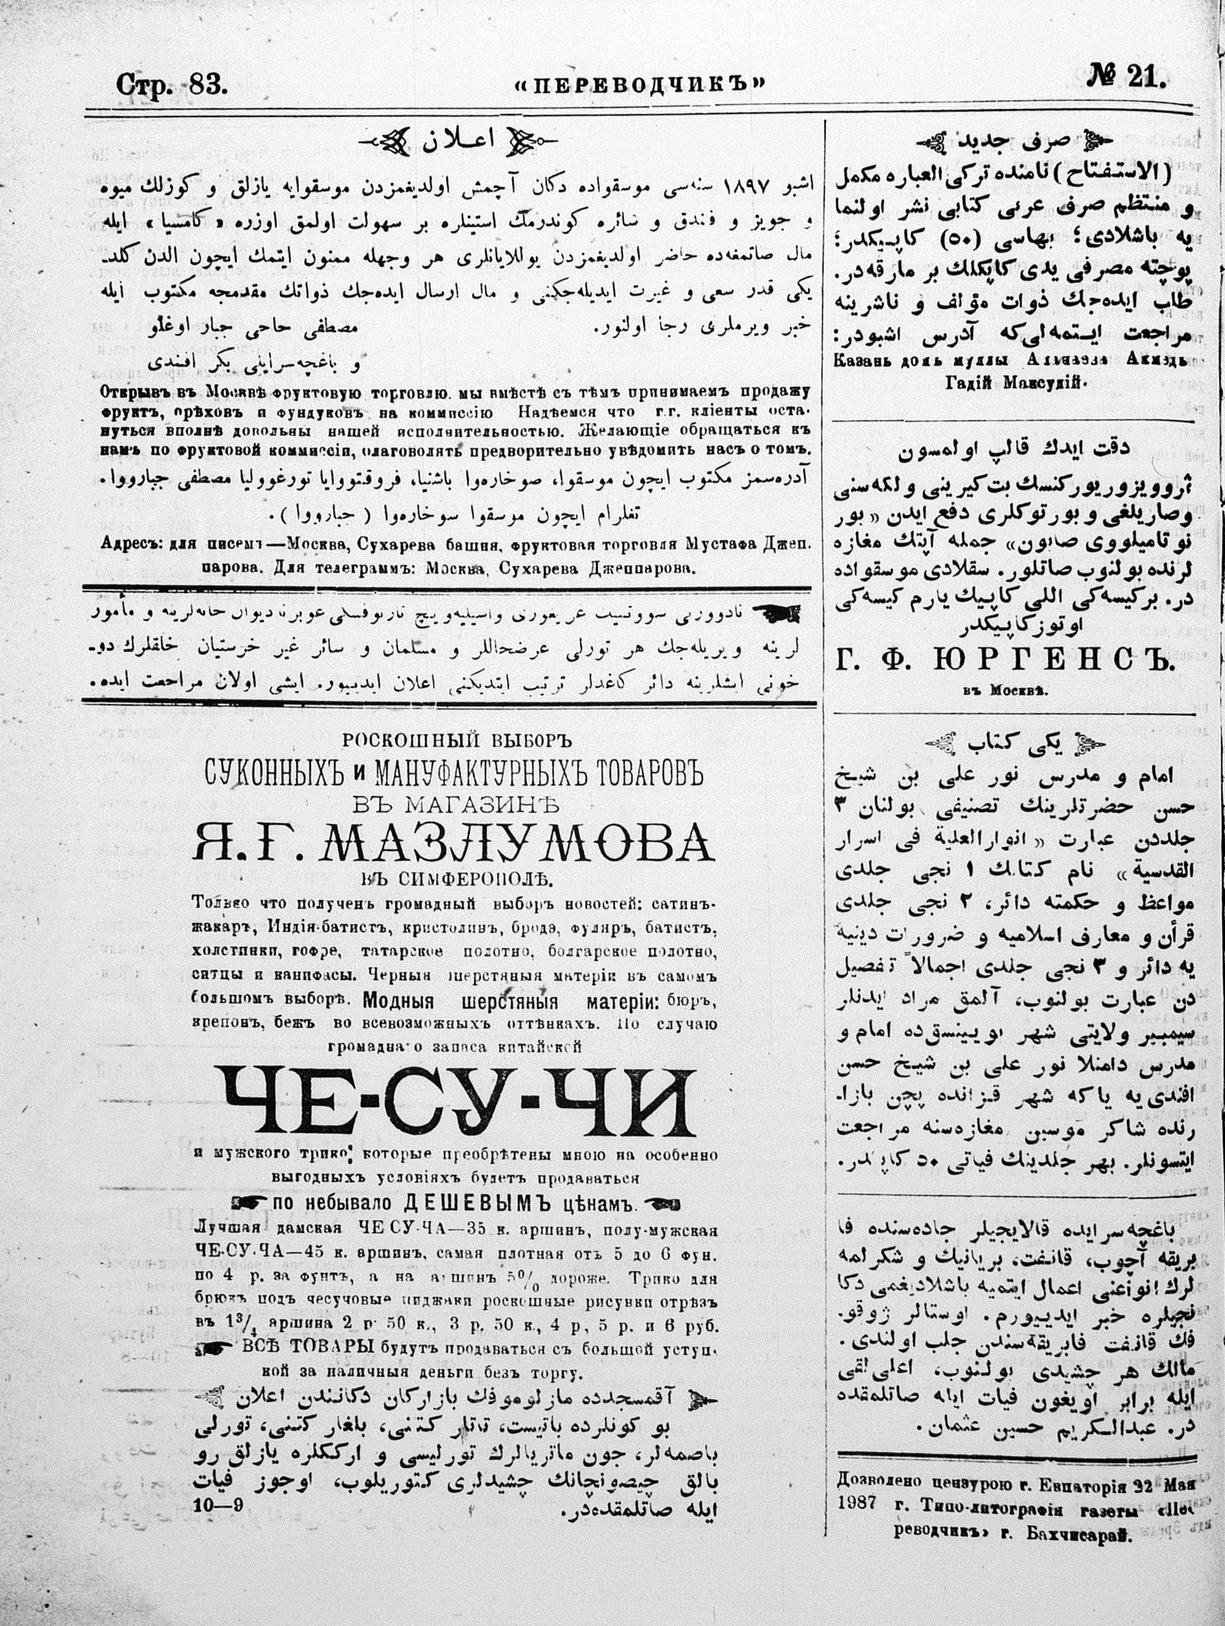 Стр. 83.
«ПЕРЕВОДЧИКЪ»
№ 21.
اعلان
اشبو ١٨٩٧ سنه‌سی موسقواده دكان آچمش اولدیغمزدن موسقوایه یازلق و كوزلك میوه
و جویز و فندق و سائره كوندرمك استینلره بر سهولت اولمق اوزره «كامسیا» ایله
مال صاتمغه‌ده حاضر اولدیغمزدن یوللایانلری هر وجهله ممنون ایتمك ایچون الدن كلد‌ـ
یكی قدر سعی و غیرت ایدیله‌جكنی و مال ارسال ایده‌جك ذواتك مقدمجه مكتوب ایله
خبر ویرملری رجا اولنور.
مصطفی حاجی جبار اوغلو
و باغچه‌سرایلی بكر افندی
Открывъ въ Москвѣ фруктовую торговлю, мы вмѣстѣ съ тѣмъ принимаемъ продажу
фруктъ, орѣховъ и фундуковъ на коммиссію Надѣемся что г.г. кліенты оста-
нуться вполнѣ довольны нашей исполнительностью. Желающіе обращаться къ
намъ по фруктовой коммиссіи, благоволятъ предворительно увѣдомить насъ о томъ.
آدره‌سمز مكتوب ایچون موسقوا، صوخاره‌وا باشنیا، فروقتووایا تورغوولیا مصطفی جبارووا.
تغلرام ایچون موسقوا سوخاره‌وا (جبارووا).
Адресъ: для писемъ—Москва, Сухарева башня, фруктовая торговля Мустафа Джеп-
парова. Для телеграммъ: Москва, Сухарева Джеппарова.
نادوورنی سووتنیك غریغوری واسیلیه‌ویچ
لرینه ویریله‌جك هر تورلی عرضحاللر و مسلمان و سائر غیر خرستیان خلقلرك دو‌ـ
خونی ایشلرینه دائر كاغدلر ترتیب ایتدیكنی اعلان ایدییور. ایشی اولان مراجعت ایده.
РОСКОШНЫЙ ВЫБОРЪ
СУКОННЫХЪ и МАНУФАКТУРНЫХЪ ТОВАРОВЪ
ВЪ МАГАЗИНѢ
Я. Г. МАЗЛУМОВА
ВЪ СИМФЕРОПОЛѢ.
Только что полученъ громадный выборъ новостей: сатинъ-
жакаръ, Индія-батистъ, кристолинъ, бродэ, фуляръ, батистъ,
холстинки, гофре, татарское полотно, болгарское полотно,
ситцы и канифасы. Черныя шерстяныя матеріи въ самомъ
большомъ выборѣ. Модныя шерстяныя матеріи: бюръ,
крепонъ, бежъ во всевозможныхъ оттѣнкахъ. По случаю
громаднаго запаса китайской
ЧЕ-СУ-ЧИ
и мужского трико, которые преобрѣтены мною на особенно
выгодныхъ условіяхъ будетъ продаваться
по небывало ДЕШЕВЫМЪ цѣнамъ.
Лучшая дамская ЧЕ СУ-ЧА—35 к. аршинъ, полу-мужская
ЧЕ-СУ-ЧА—45 к. аршинъ, самая плотная отъ 5 до 6 фун.
по 4 р. за фунтъ, а на аршинъ 5% дороже. Трико для
брюкъ подъ чесучовые пиджаки роскошные рисунки отрѣзъ
въ 1¾ аршина 2 р. 50 к., 3 р. 50 к., 4 р, 5 р. и 6 руб.
ВСѢ ТОВАРЫ будутъ продаваться съ большой уступ-
кой за наличныя деньги безъ торгу.
آقمسجدده مازلوموفك بازارگان دكانندن اعلان
بو كونلرده باتیست، تاتار كتنی، بلغار كتنی، تورلی
باصمه‌لر، جون ماتریالرك تورلیسی و ارككلره یازلق رو
بالق چیصونچانك چشیدلری كتوریلوب، اوجوز فیات
ایله صاتلمقده‌در.
10—9
صرف جدید
(الاستفتاح) نامنده تركی العباره مكمل
و منتظم صرف عربی كتابی نشر اولنما
یه باشلادی؛ بهاسی (٥٠) كاپیكدر؛
پوچته مصرفی یدی كاپكلك بر مارقه‌در.
طلب ایده‌جك ذوات مؤلف و ناشرینه
مراجعت ایستمه‌لی‌كه آدرس اشبودر:
Казань домъ муллы Ахмедъ
Гадій Максудій.
دقت ایدك قالپ اولمسون
پروویزور یوركنسك بت كیرینی و لكه‌سنی
وصاریلغی و بورتوكلری دفع ایدن «بور
نوتامیلووی صابون» جمله آپتك مغازه
لرنده بولنوب صاتلور. سقلادی موسقواده
در. بركیسه‌كی اللی كاپیك یارم كیسه‌كی
اوتوز كاپیكدر
Г. Ф. ЮРГЕНСЪ.
въ Москвѣ.
یكی كتاب
امام و مدرس نور علی بن شیخ
حسن حضرتلرینك تصنیفی بولنان ٣
جلددن عبارت «انوارالعلیة فی اسرار
القدسیة» نام كتابك ١ نجی جلدی
مواعظ و حكمته دائر، ٢ نجی جلدی
قرأن و معارف اسلامیه و ضرورات دینیه
یه دائر و ٣ نجی جلدی اجمالاً تفصیل
دن عبارت بولنوب، آلمق مراد ایدنلر
سیمبیر ولایتی شهر بویینسق‌ده امام و
مدرس داملا نور علی بن شیخ حسن
افندی‌یه یاكه شهر قزانده پچن بازا‌ـ
رنده شاكر موسین مغازه‌سنه مراجعت
ایتسونلر. بهر جلدینك فیاتی ٥٠ كاپكدر.
باغچه‌سرایده قالایجیلر جاده‌سنده فا
بریقه آچوب، قانفت، بریانیك و شكرلمه
لرك انواعنی اعمال ایتمیه باشلادیغمی دكا
نجیلره خبر ایدییورم. اوستالر ژوقو‌ـ
فك قانفت فابریقه‌سندن جلب اولندی.
مالك هر چشیدی بولنوب، اعلی‌لقی
ایله برابر اویغون فیات ایله صاتلمقده
در. عبدالكریم حسین عثمان.
Дозволено цензурою г. Евпаторія 22 Мая
1987 г. Типо-литографія газеты «Пе-
реводчикъ» г. Бахчисарай.